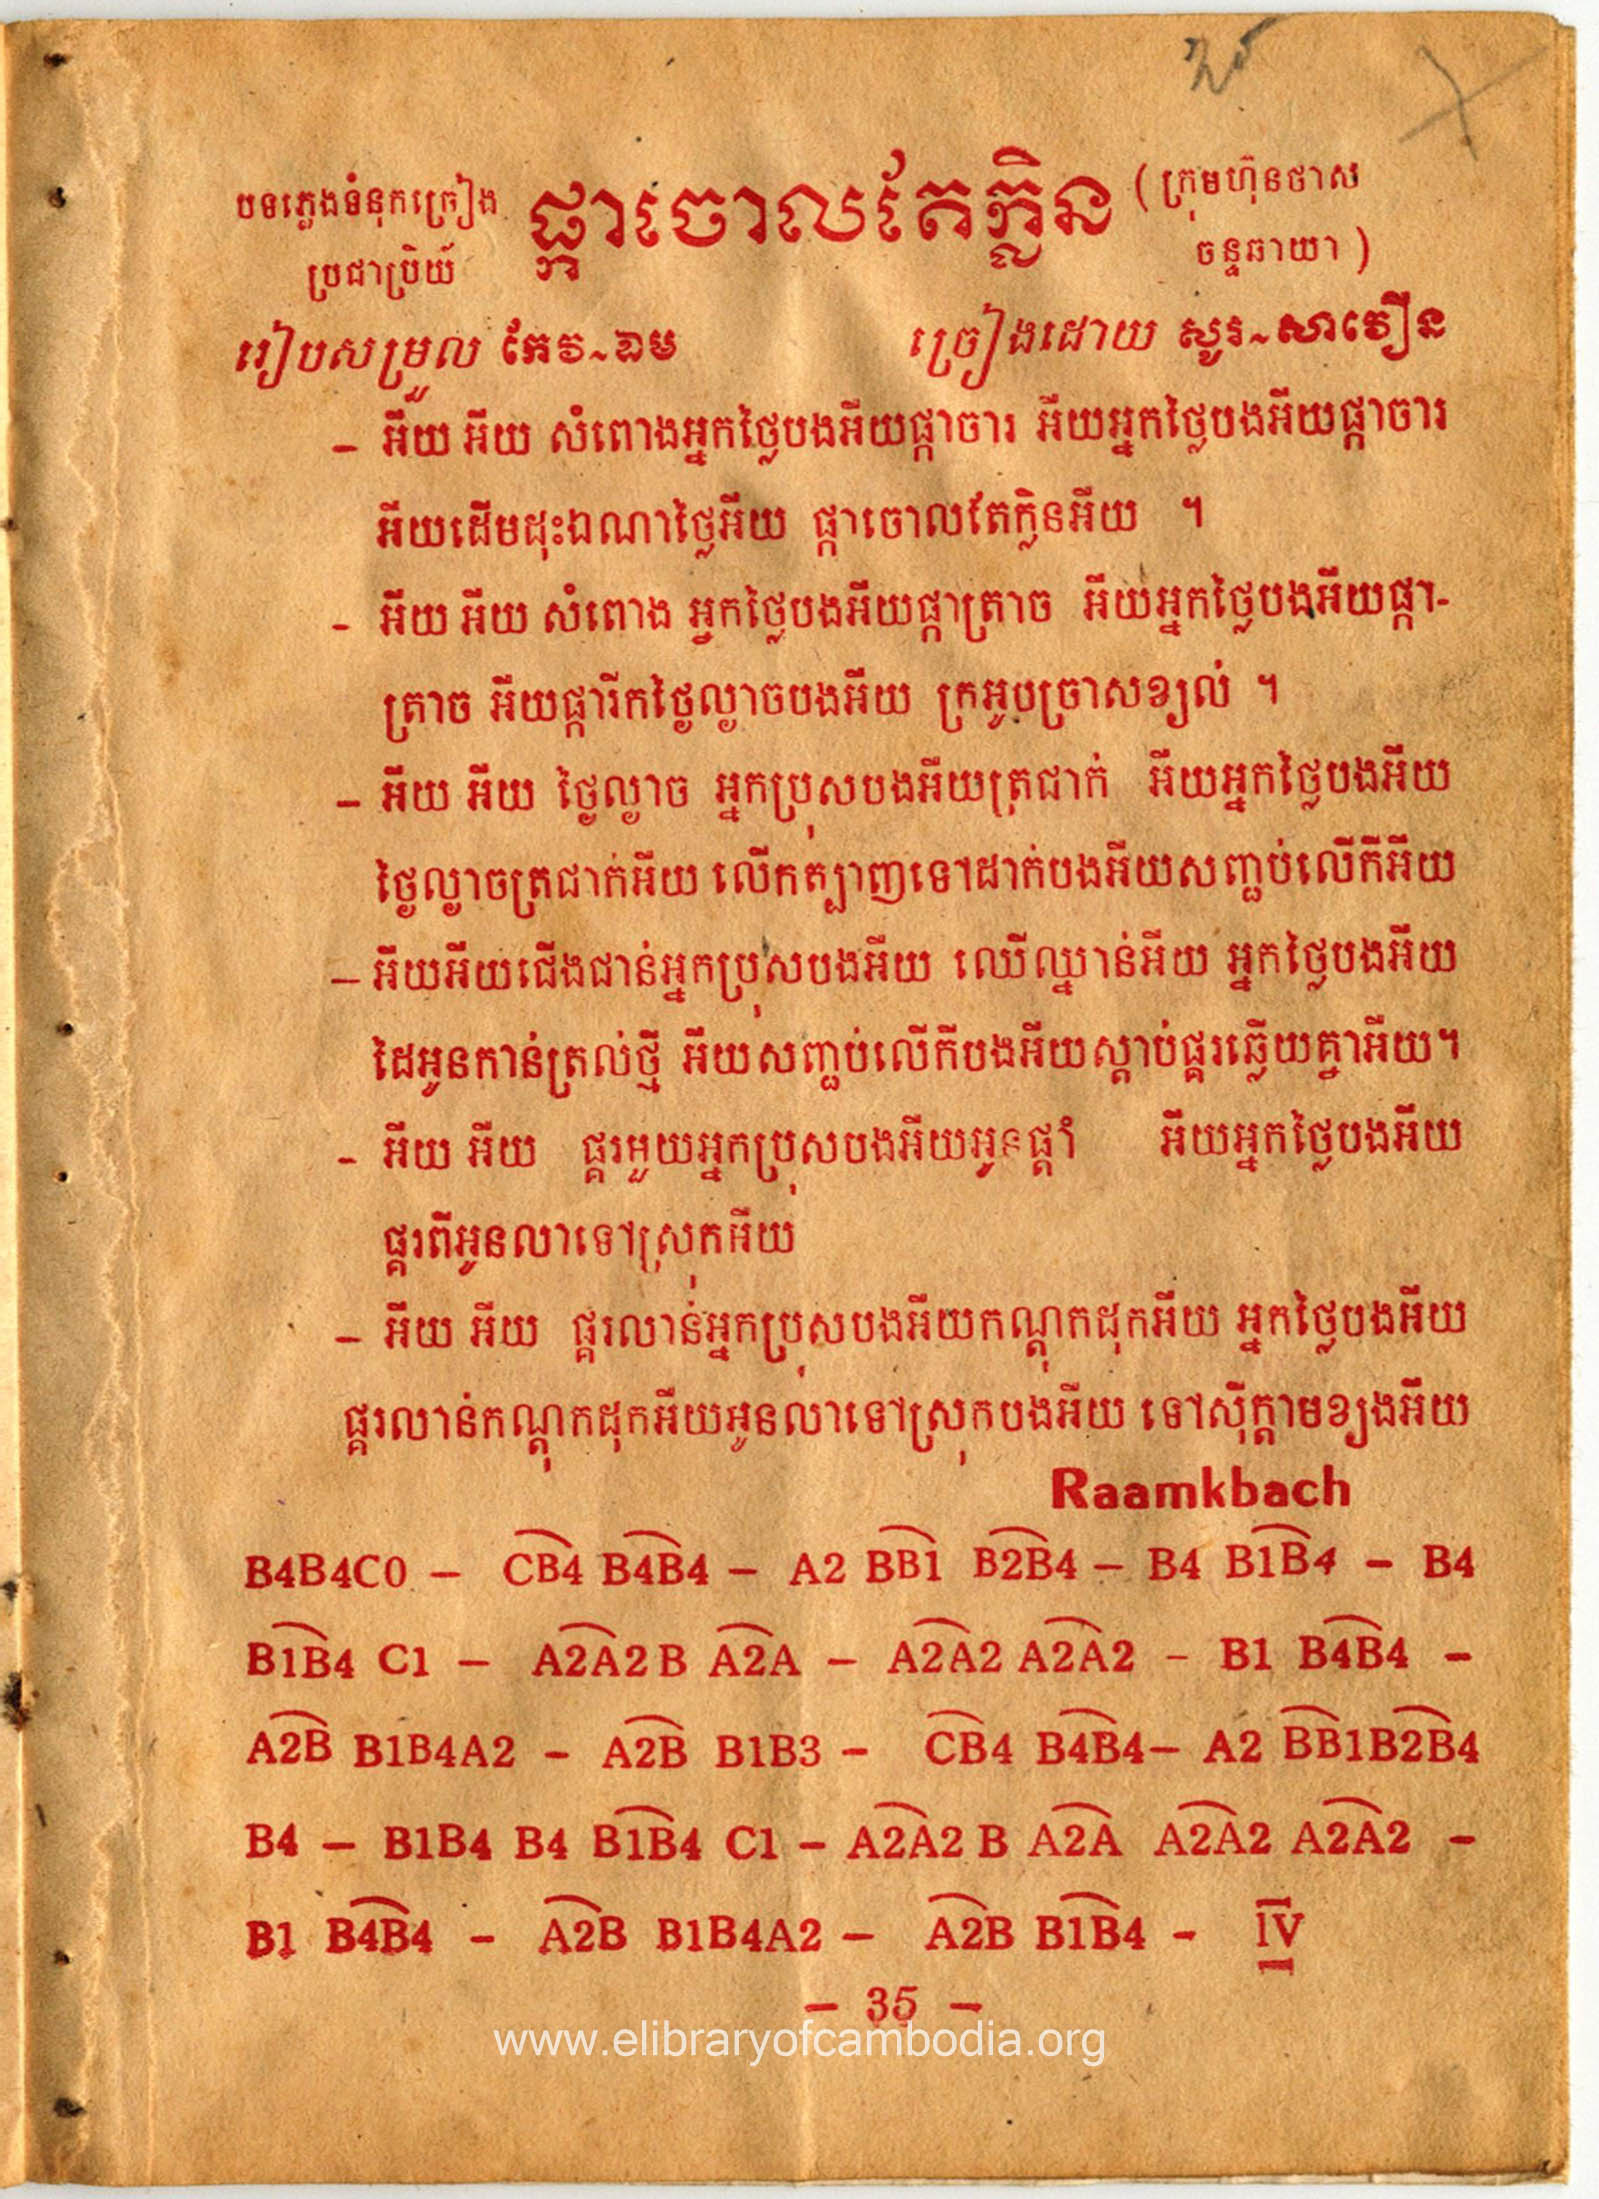 បទភ្លេងទំនុកច្រៀង ផ្កាចោលតែក្លិន ( ក្រុមហ៊ុនថាស
ប្រជាប្រិយ៍ ចន្ទឆាយា )
រៀបសម្រួល កែវ~ឯម ច្រៀងដោយ សូរ~សាវឿន
– អីយ អីយ សំពោងអ្នកថ្លៃបងអីយផ្កាចារ អីយអ្នកថ្លៃបងអីយផ្កាចារ
អីយដើមដុះឯណាថ្លៃអីយ ផ្កាចោលតែក្លិនអីយ ។
- អីយ អីយ សំពោង អ្នកថ្លៃបងអីយផ្កាត្រាច អីយអ្នកថ្លៃបងអីយផ្កា-
ត្រាច អីយផ្ការីកថ្ងៃល្ងាចបងអីយ ក្រអូបច្រាសខ្យល់ ។
– អីយ អីយ ថ្ងៃល្ងាច អ្នកប្រុសបងអីយត្រជាក់ អីយអ្នកថ្លៃបងអីយ
ថ្ងៃល្ងាចត្រជាក់អីយ លើកត្បាញទៅដាក់បងអីយសញ្ជប់លើកីអីយ
– អីយអីយជើងជាន់អ្នកប្រុសបងអីយ ឈើឈ្នាន់អីយ អ្នកថ្លៃបងអីយ
ដៃអូនកាន់ត្រល់ថ្មី អីយសញ្ជប់លើកីបងអីយស្តាប់ផ្គរឆ្លើយគ្នាអីយ។
- អីយ អីយ ផ្គរមួយអ្នកប្រុសបងអីយអូនផ្តាំ អីយអ្នកថ្លៃបងអីយ
ផ្គរពីអូនលាទៅស្រុកអីយ
– អីយ អីយ ផ្គរលាន់អ្នកប្រុសបងអីយកណ្តុកដុកអីយ អ្នកថ្លៃបងអីយ
ផ្គរលាន់កណ្តុកដុកអីយអូនលាទៅស្រុកបងអីយ ទៅស៊ីក្តាមខ្យងអីយ
Raamkbach
B4B4C0 – CB4 B4B4 – A2 BB1 B2B4 – B4 B1B4 – B4
B1B4 C1 – A2A2 B A2A – A2A2 A2A2 – B1 B4B4 –
A2B B1B4A2 – A2B B1B3 – CB4 B4B4– A2 BB1B2B4
B4 – B1B4 B4 B1B4 C1 – A2A2 B A2A A2A2 A2A2 –
B1 B4B4 – A2B B1B4A2 – A2B B1B4 – IV
– 35 –
www.elibraryofcambodia.org